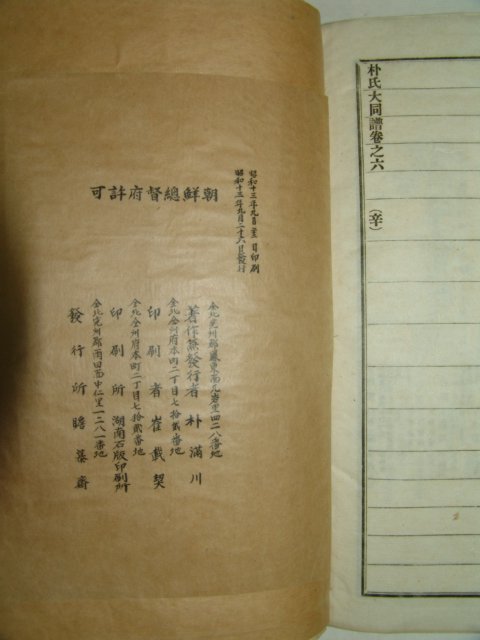 朴氏大同譜卷之六 (辛)
昭和十三年九月 日印刷
昭和十三年九月二十六日發行
朝鮮總督府許可
全北完州郡鳳東面九岩里四二八番地
著作兼發行者 朴滿川
全北全州府本町二丁目七拾貳番地
印刷者 崔
全北全州府本町二丁目七拾貳番地
印刷所 湖南石版印刷所
全北完州郡雨田面中仁里一二八一番地
發行所 瞻慕齋